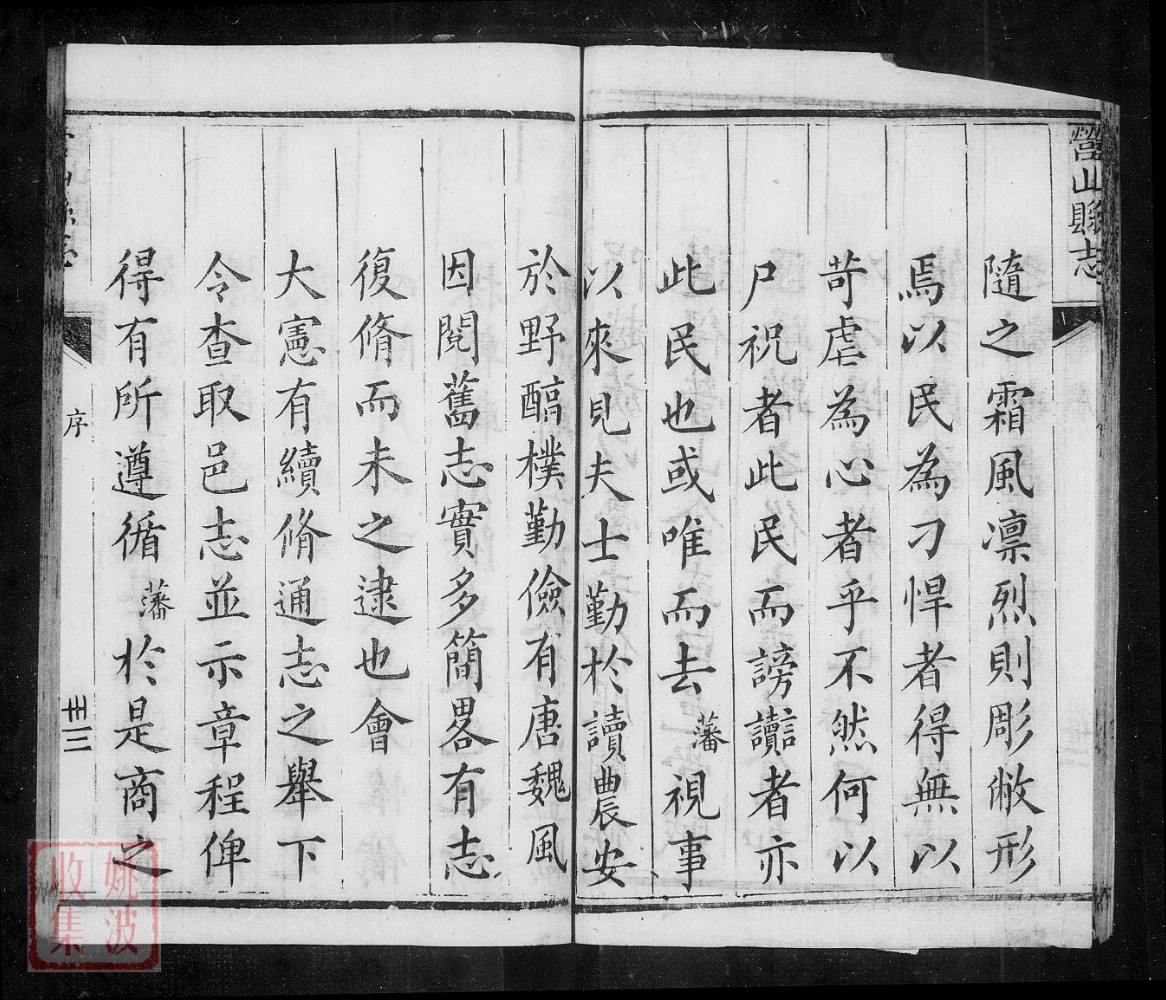 營山縣志
隨之霜風凛烈則彫敝形
焉以民為刁悍者得無以
苛虐為心者乎不然何以
尸祝者此民而謗讟者亦
此民也或唯而去藩視事
以來見夫士勤於讀農安
於野酷樸勤儉有唐魏風
因閱舊志實多簡畧有志
復脩而未之逮也會
大憲有續脩通志之舉下
令查取邑志並示章程俾
得有所遵循藩於是商之
序
卅三
姚波
收集